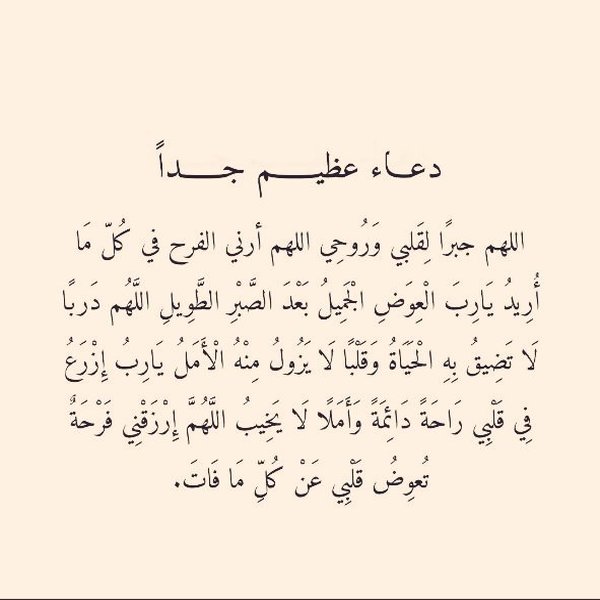 دعـــاء عظيـــــم جـــــداً
اللهم جبرًا لِقَلبي وَرُوحِي اللهم أرني الفرح في كُلّ مَا
أُرِيدُ يَارِبَ الْعِوَضِ الْجَمِيلُ بَعْدَ الصَّبْرِ الطَّوِيلِ اللَّهُم دَربًا
لَا تَضِيقُ بِهِ الْحَيَاةُ وَقَلْبًا لَا يَزُولُ مِنْهُ الْأَمَلُ يَارِبُ إِزْرَعُ
فِي قَلْبِي رَاحَةً دَائِمَةً وَأَمَلًا لَا يَخِيبُ اللَّهُمَّ إِرْزَقْنِي فَرْحَةٌ
تُعوِضُ قَلْبِي عَنْ كُلِّ مَا فَاتَ.